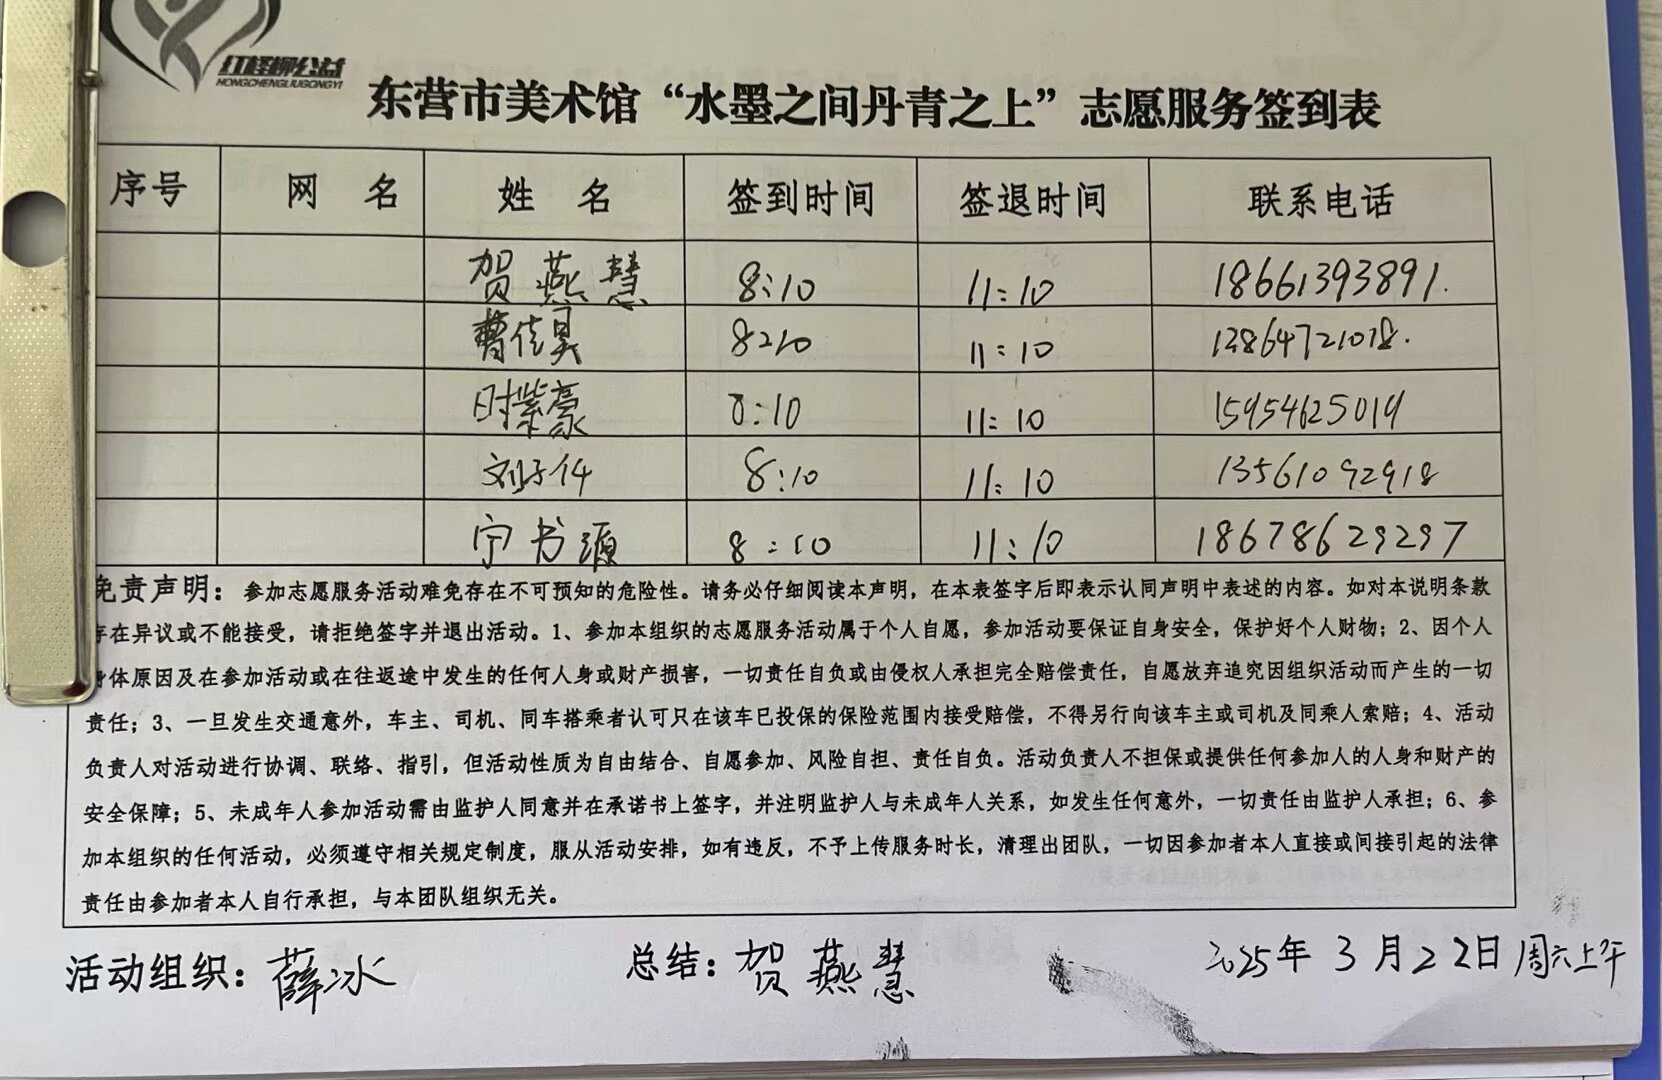 红柽柳公益
HONGCHENGLIUGONGYI
东营市美术馆“水墨之间丹青之上”志愿服务签到表
序号 网 名 姓 名 签到时间 签退时间 联系电话
贺燕慧 8:10 11:10 18661393891.
曹佳昊 8:10 11:10 13864721018.
时紫豪 8:10 11:10 15954625019
刘子仟 8:10 11:10 13561092918
宁书源 8:10 11:10 18678629297
免责声明：参加志愿服务活动难免存在不可预知的危险性。请务必仔细阅读本声明，在本表签字后即表示认同声明中表述的内容。如对本说明条款
存在异议或不能接受，请拒绝签字并退出活动。1、参加本组织的志愿服务活动属于个人自愿，参加活动要保证自身安全，保护好个人财物；2、因个人
身体原因及在参加活动或在往返途中发生的任何人身或财产损害，一切责任自负或由侵权人承担完全赔偿责任，自愿放弃追究因组织活动而产生的一切
责任；3、一旦发生交通意外，车主、司机、同车搭乘者认可只在该车已投保的保险范围内接受赔偿，不得另行向该车主或司机及同乘人索赔；4、活动
负责人对活动进行协调、联络、指引，但活动性质为自由结合、自愿参加、风险自担、责任自负。活动负责人不担保或提供任何参加人的人身和财产的
安全保障；5、未成年人参加活动需由监护人同意并在承诺书上签字，并注明监护人与未成年人关系，如发生任何意外，一切责任由监护人承担；6、参
加本组织的任何活动，必须遵守相关规定制度，服从活动安排，如有违反，不予上传服务时长，清理出团队，一切因参加者本人直接或间接引起的法律
责任由参加者本人自行承担，与本团队组织无关。
活动组织：薛冰 总结：贺燕慧 2025年3月22日周六上午